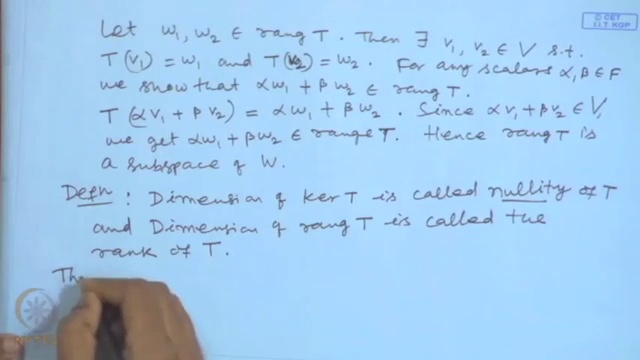 Let w₁, w₂ ∈ rang T. Then ∃ v₁, v₂ ∈ V s.t.
T(v₁) = w₁ and T(v₂) = w₂. For any scalars α, β ∈ F
we show that αw₁ + βw₂ ∈ rang T.
T(αv₁ + βv₂) = αw₁ + βw₂. Since αv₁ + βv₂ ∈ V,
we get αw₁ + βw₂ ∈ range T. Hence rang T is
a subspace of W.
Defn : Dimension of ker T is called nullity of T
and Dimension of rang T is called the
rank of T.
The
© CET
I.I.T. KGP